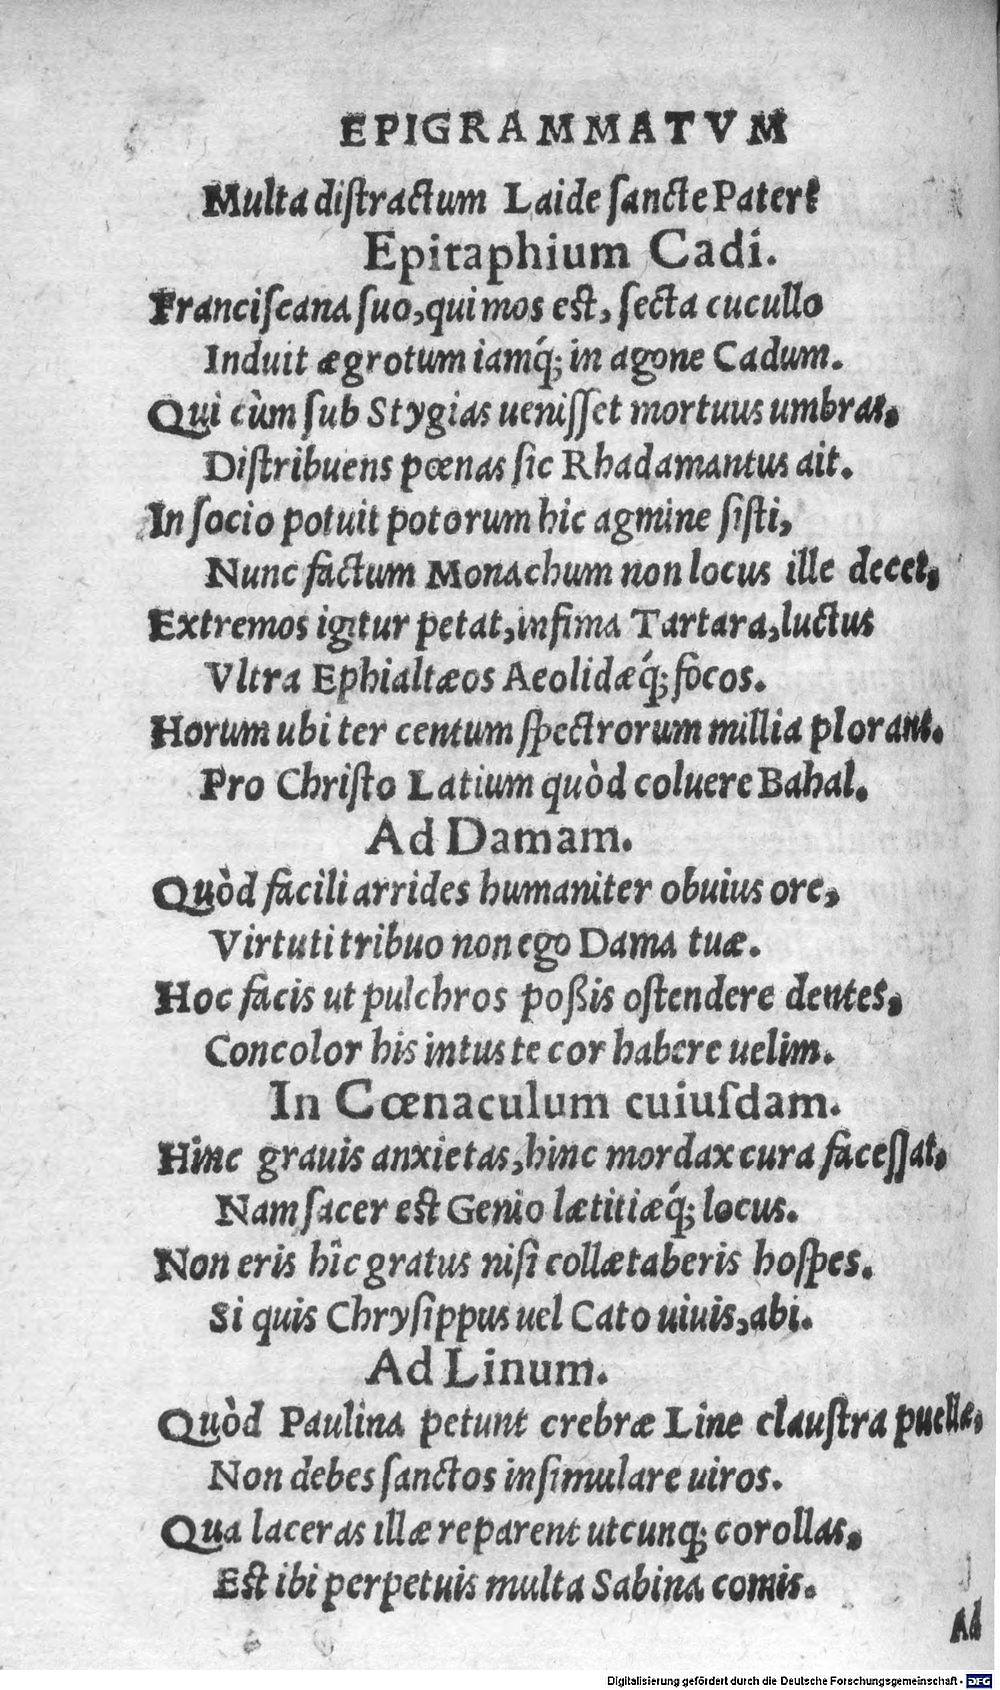 EPIGRAMMATVM
Multa diſtractum Laide ſancte Pater?
Epitaphium Cadi.
Franciſcana ſuo, qui mos eſt, ſecta cucullo
Induit ægrotum iamq́; in agone Cadum.
Qui cùm ſub Stygias ueniſſet mortuus umbras,
Diſtribuens pœnas ſic Rhadamantus ait.
In ſocio potuit potorum hic agmine ſiſti,
Nunc factum Monachum non locus ille decet,
Extremos igitur petat, infima Tartara, luctus
Vltra Ephialtæos Aeolidæq́; focos.
Horum ubi ter centum ſpectrorum millia plorant.
Pro Chriſto Latium quòd coluere Bahal.
Ad Damam.
Quòd facili arrides humaniter obuius ore,
Virtuti tribuo non ego Dama tuæ.
Hoc facis ut pulchros poßis oſtendere dentes,
Concolor his intus te cor habere uelim.
In Cœnaculum cuiuſdam.
Hinc grauis anxietas, hinc mordax cura faceſſat,
Nam ſacer eſt Genio lætitiæq́; locus.
Non eris hîc gratus niſi collætaberis hoſpes.
Si quis Chryſippus uel Cato uiuis, abi.
Ad Linum.
Quòd Paulina petunt crebræ Line clauſtra puellæ,
Non debes ſanctos inſimulare uiros.
Qua laceras illæ reparent utcunq; corollas,
Eſt ibi perpetuis multa Sabina comis.
Ad
Digitalisierung gefördert durch die Deutsche Forschungsgemeinschaft - DFG